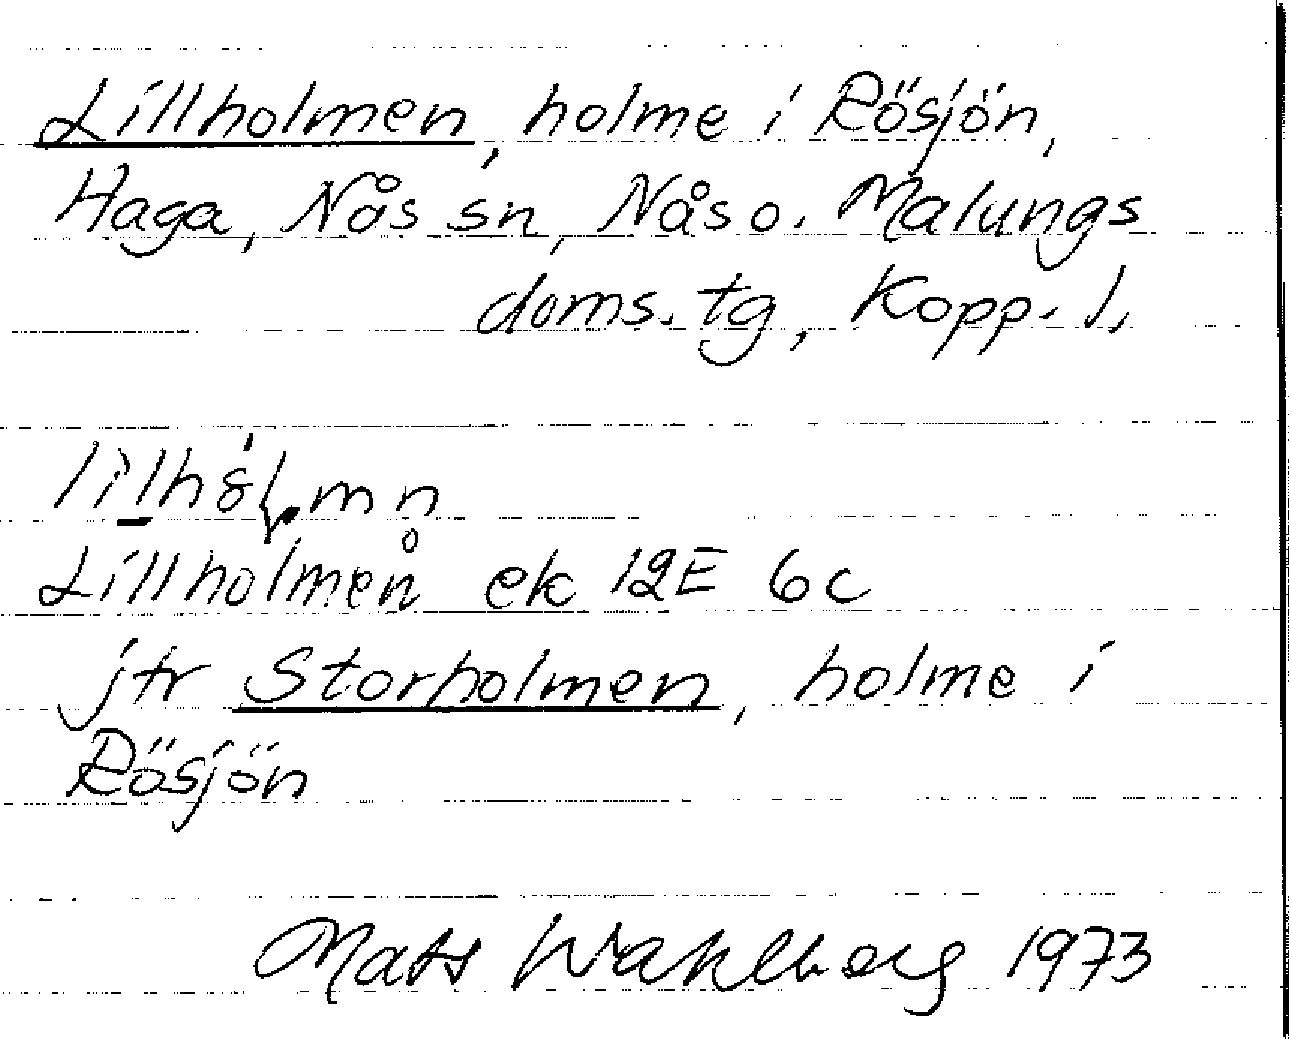 Lillholmen, holme i Rösjön,
Haga, Nås sn, Nås o. Malungs
doms. tg, Kopp. l.
Lillholmen ek 12E 6c
jtr Storholmen, holme i
Rösjön
Mats Wahlberg 1973